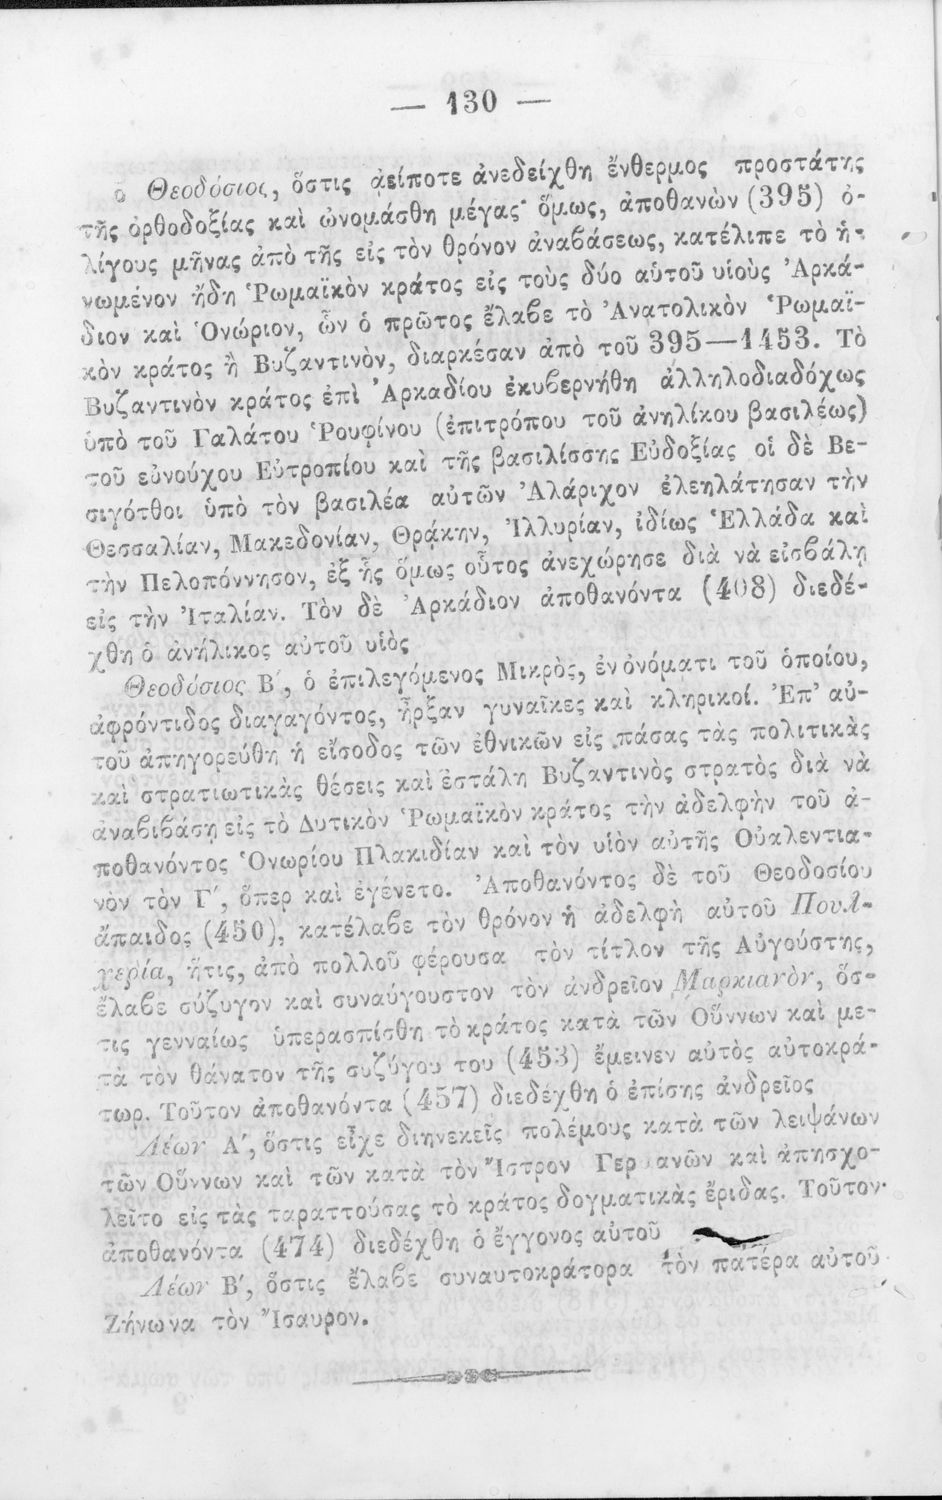 — 130 —
ὁ Θεοδόσιος, ὅστις ἀείποτε ἀνεδείχθη ἔνθερμος προστάτης
τῆς ὀρθοδοξίας καὶ ὠνομάσθη μέγας· ὅμως, ἀποθανὼν (395) ὀ-
λίγους μῆνας ἀπὸ τῆς εἰς τὸν θρόνον ἀναβάσεως, κατέλιπε τὸ ἡ-
νωμένον ἤδη Ῥωμαϊκὸν κράτος εἰς τοὺς δύο αὑτοῦ υἱοὺς Ἀρκά-
διον καὶ Ὁνώριον, ὧν ὁ πρῶτος ἔλαβε τὸ Ἀνατολικὸν Ῥωμαϊ-
κὸν κράτος ἢ Βυζαντινὸν, διαρκέσαν ἀπὸ τοῦ 395—1453. Τὸ
Βυζαντινὸν κράτος ἐπὶ Ἀρκαδίου ἐκυβερνήθη ἀλληλοδιαδόχως
ὑπὸ τοῦ Γαλάτου Ῥουφίνου (ἐπιτρόπου τοῦ ἀνηλίκου βασιλέως)
τοῦ εὐνούχου Εὐτροπίου καὶ τῆς βασιλίσσης Εὐδοξίας οἱ δὲ Βε-
σιγότθοι ὑπὸ τὸν βασιλέα αὐτῶν Ἀλάριχον ἐλεηλάτησαν τὴν
Θεσσαλίαν, Μακεδονίαν, Θρᾴκην, Ἰλλυρίαν, ἰδίως Ἑλλάδα καὶ
τὴν Πελοπόννησον, ἐξ ἧς ὅμως οὗτος ἀνεχώρησε διὰ νὰ εἰσβάλῃ
εἰς τὴν Ἰταλίαν. Τὸν δὲ Ἀρκάδιον ἀποθανόντα (408) διεδέ-
χθη ὁ ἀνήλικος αὑτοῦ υἱὸς
Θεοδόσιος Β΄, ὁ ἐπιλεγόμενος Μικρὸς, ἐν ὀνόματι τοῦ ὁποίου,
ἀφρόντιδος διαγαγόντος, ἦρξαν γυναῖκες καὶ κληρικοί. Ἐπ’ αὐ-
τοῦ ἀπηγορεύθη ἡ εἴσοδος τῶν ἐθνικῶν εἰς πάσας τὰς πολιτικὰς
καὶ στρατιωτικὰς θέσεις καὶ ἐστάλη Βυζαντινὸς στρατὸς διὰ νὰ
ἀναβιβάσῃ εἰς τὸ Δυτικὸν Ῥωμαϊκὸν κράτος τὴν ἀδελφὴν τοῦ ἀ-
ποθανόντος Ὁνωρίου Πλακιδίαν καὶ τὸν υἱὸν αὐτῆς Οὐαλεντια-
νὸν τὸν Γ΄, ὅπερ καὶ ἐγένετο. Ἀποθανόντος δὲ τοῦ Θεοδοσίου
ἄπαιδος (450), κατέλαβε τὸν θρόνον ἡ ἀδελφὴ αὐτοῦ Πουλ-
χερία, ἥτις, ἀπὸ πολλοῦ φέρουσα τὸν τίτλον τῆς Αὐγούστης,
ἔλαβε σύζυγον καὶ συναύγουστον τὸν ἀνδρεῖον Μαρκιανὸν, ὅσ-
τις γενναίως ὑπερασπίσθη τὸ κράτος κατὰ τῶν Οὕννων καὶ με-
τὰ τὸν θάνατον τῆς συζύγου του (453) ἔμεινεν αὐτὸς αὐτοκρά-
τωρ. Τοῦτον ἀποθανόντα (457) διεδέχθη ὁ ἐπίσης ἀνδρεῖος
Λέων Α΄, ὅστις εἶχε διηνεκεῖς πολέμους κατὰ τῶν λειψάνων
τῶν Οὕννων καὶ τῶν κατὰ τὸν Ἴστρον Γερμανῶν καὶ ἀπησχο-
λεῖτο εἰς τὰς ταραττούσας τὸ κράτος δογματικὰς ἔριδας. Τοῦτον
ἀποθανόντα (474) διεδέχθη ὁ ἔγγονος αὐτοῦ
Λέων Β΄, ὅστις ἔλαβε συναυτοκράτορα τὸν πατέρα αὐτοῦ
Ζήνωνα τὸν Ἴσαυρον.